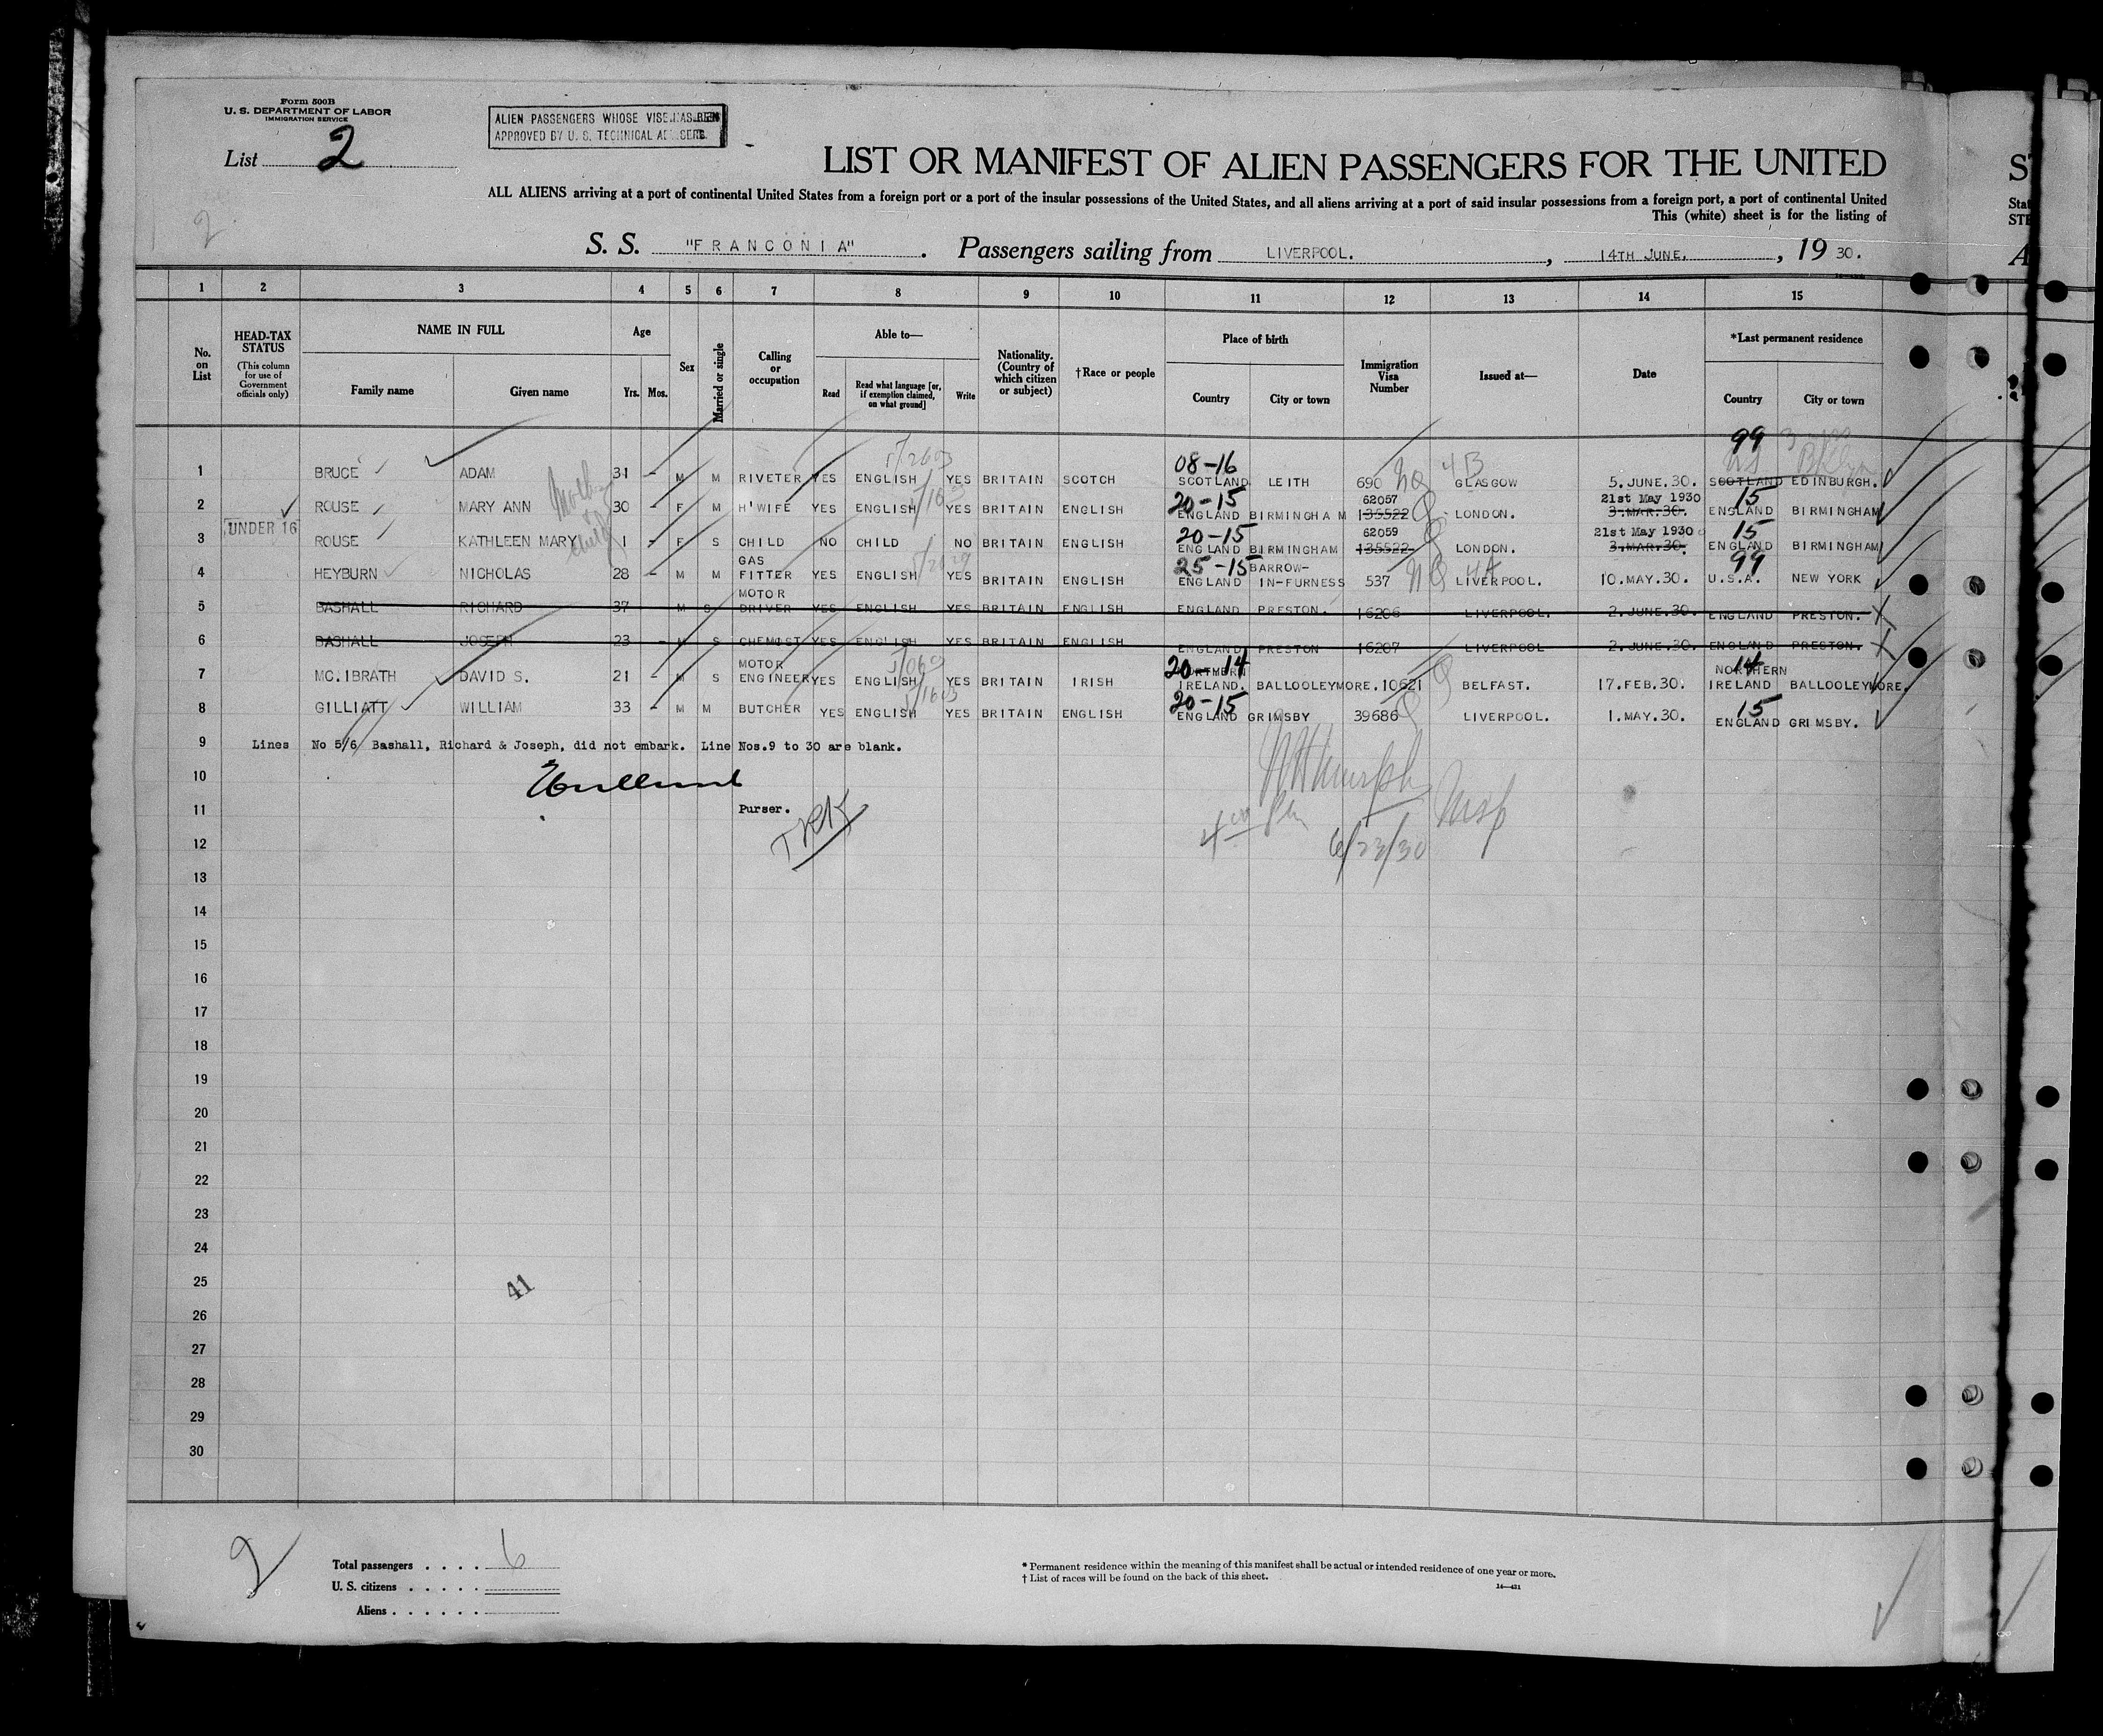 Form 500B
U. S. DEPARTMENT OF LABOR
IMMIGRATION SERVICE
ALIEN PASSENGERS WHOSE VISE HAS BEEN
APPROVED BY U. S. TECHNICAL ADVISERS.
List 2
2
LIST OR MANIFEST OF ALIEN PASSENGERS FOR THE UNITED
ALL ALIENS arriving at a port of continental United States from a foreign port or a port of the insular possessions of the United States, and all aliens arriving at a port of said insular possessions from a foreign port, a port of continental United
This (white) sheet is for the listing of
S. S. "FRANCONIA". Passengers sailing from LIVERPOOL., 14TH JUNE., 19 30.
1 2 3 4 5 6 7 8 9 10 11 12 13 14 15
No. on List
HEAD-TAX STATUS
(This column for use of Government officials only)
NAME IN FULL
Family name Given name
Age
Yrs. Mos.
Sex
Married or single
Calling or occupation
Able to—
Read Read what language [or, if exemption claimed, on what ground] Write
Nationality. (Country of which citizen or subject)
†Race or people
Place of birth
Country City or town
Immigration Visa Number
Issued at—
Date
*Last permanent residence
Country City or town
99
08-16
1 BRUCE ADAM 31 - M M RIVETER YES ENGLISH YES BRITAIN SCOTCH SCOTLAND LEITH 690 GLASGOW 5.JUNE.30. SCOTLAND EDINBURGH.
20-15 62057 21st May 1930 15
2 ROUSE MARY ANN 30 - F M H'WIFE YES ENGLISH YES BRITAIN ENGLISH ENGLAND BIRMINGHAM 135522 LONDON. 3.MAR.30. ENGLAND BIRMINGHAM
UNDER 16
20-15 62059 21st May 1930 15
3 ROUSE KATHLEEN MARY 1 - F S CHILD NO CHILD NO BRITAIN ENGLISH ENGLAND BIRMINGHAM 135522 LONDON. 3.MAR.30. ENGLAND BIRMINGHAM
25-15 99
4 HEYBURN NICHOLAS 28 - M M GAS FITTER YES ENGLISH YES BRITAIN ENGLISH ENGLAND BARROW-IN-FURNESS 537 LIVERPOOL. 10.MAY.30. U.S.A. NEW YORK
5 BASHALL RICHARD 37 M S MOTOR DRIVER YES ENGLISH YES BRITAIN ENGLISH ENGLAND PRESTON. 16206 LIVERPOOL. 2.JUNE.30. ENGLAND PRESTON. X
6 BASHALL JOSEPH 23 - M S CHEMIST YES ENGLISH YES BRITAIN ENGLISH ENGLAND PRESTON 16207 LIVERPOOL 2.JUNE.30. ENGLAND PRESTON. X
20-14 14
7 MC.IBRATH DAVID S. 21 - M S MOTOR ENGINEER YES ENGLISH YES BRITAIN IRISH NORTHERN IRELAND. BALLOOLEYMORE. 10621 BELFAST. 17.FEB.30. NORTHERN IRELAND BALLOOLEYMORE.
20-15 15
8 GILLIATT WILLIAM 33 - M M BUTCHER YES ENGLISH YES BRITAIN ENGLISH ENGLAND GRIMSBY 39686 LIVERPOOL. 1.MAY.30. ENGLAND GRIMSBY.
9 Lines No 5/6 Bashall, Richard & Joseph, did not embark. Line Nos.9 to 30 are blank.
10
11 Purser.
12 6/23/30
13
14
15
16
17
18
19
20
21
22
23
24
25
41
26
27
28
29
30
2
Total passengers . . . . 6
U. S. citizens . . . . .
Aliens . . . . . .
* Permanent residence within the meaning of this manifest shall be actual or intended residence of one year or more.
† List of races will be found on the back of this sheet.
14—421